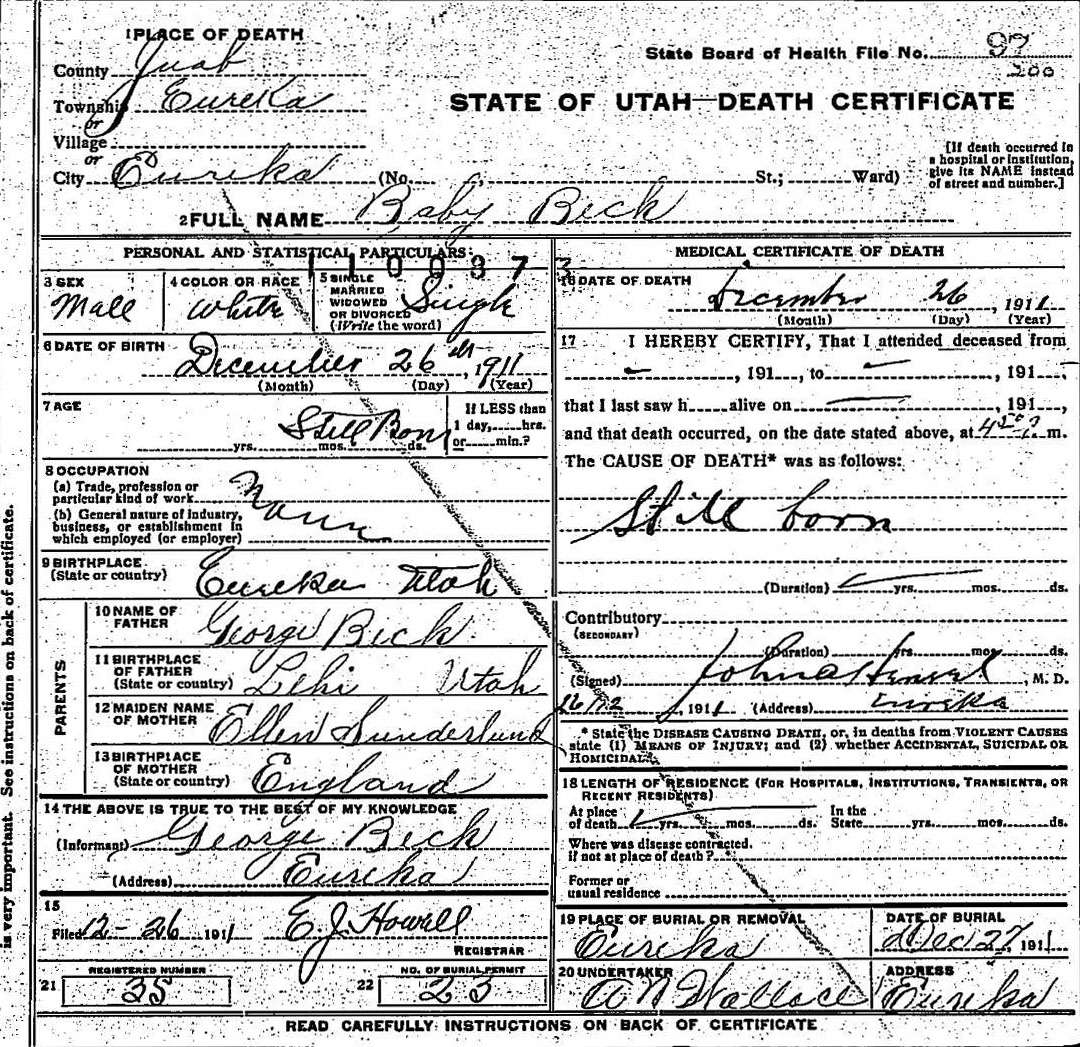 1 PLACE OF DEATH
State Board of Health File No. 97
200
County Juab
Township Eureka
or
STATE OF UTAH—DEATH CERTIFICATE
Village
or
City Eureka (No. , St.; Ward)
[If death occurred in
a hospital or institution,
give its NAME instead
of street and number.]
2 FULL NAME Baby Beck
PERSONAL AND STATISTICAL PARTICULARS
1100373
3 SEX
Male
4 COLOR OR RACE
White
5 SINGLE
MARRIED
WIDOWED
OR DIVORCED
(Write the word)
Single
6 DATE OF BIRTH
December 26th, 1911
(Month) (Day) (Year)
7 AGE
Still Born
yrs. mos. ds.
If LESS than
1 day, hrs.
or min.?
8 OCCUPATION
(a) Trade, profession or
particular kind of work
(b) General nature of industry,
business, or establishment in
which employed (or employer)
9 BIRTHPLACE
(State or country)
Eureka Utah
PARENTS
10 NAME OF
FATHER
George Beck
11 BIRTHPLACE
OF FATHER
(State or country)
Lehi Utah
12 MAIDEN NAME
OF MOTHER
Ellen Sunderland
13 BIRTHPLACE
OF MOTHER
(State or country)
England
14 THE ABOVE IS TRUE TO THE BEST OF MY KNOWLEDGE
(Informant) George Beck
(Address) Eureka
15
Filed 12-26 1911 E. J. Howell
REGISTRAR
REGISTERED NUMBER
21 35
NO. OF BURIAL PERMIT
22 23
MEDICAL CERTIFICATE OF DEATH
16 DATE OF DEATH
December 26, 1911
(Month) (Day) (Year)
17 I HEREBY CERTIFY, That I attended deceased from
, 191 , to , 191 ,
that I last saw h alive on , 191 ,
and that death occurred, on the date stated above, at m.
The CAUSE OF DEATH* was as follows:
Still born
(Duration) yrs. mos. ds.
Contributory
(SECONDARY)
(Duration) yrs. mos. ds.
(Signed) John , M. D.
, 1911 (Address) Eureka
* State the DISEASE CAUSING DEATH, or, in deaths from VIOLENT CAUSES
state (1) MEANS OF INJURY; and (2) whether ACCIDENTAL, SUICIDAL OR
HOMICIDAL.
18 LENGTH OF RESIDENCE (FOR HOSPITALS, INSTITUTIONS, TRANSIENTS, OR
RECENT RESIDENTS)
At place
of death yrs. mos. ds.
In the
State yrs. mos. ds.
Where was disease contracted,
if not at place of death?
Former or
usual residence
19 PLACE OF BURIAL OR REMOVAL
Eureka
DATE OF BURIAL
Dec 27, 1911
20 UNDERTAKER
A N Wallace
ADDRESS
Eureka
READ CAREFULLY INSTRUCTIONS ON BACK OF CERTIFICATE
is very important. See instructions on back of certificate.